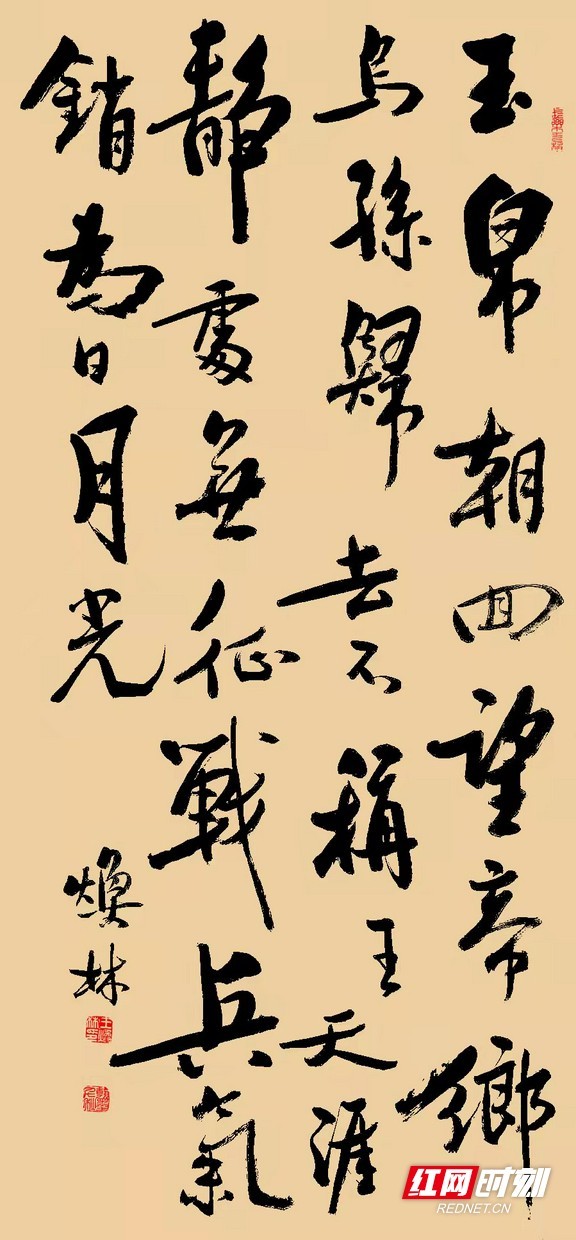 玉帛朝回望帝鄉
烏孫歸去不稱王天涯
靜處無征戰兵氣
銷為日月光
煥林
红网时刻
REDNET.CN